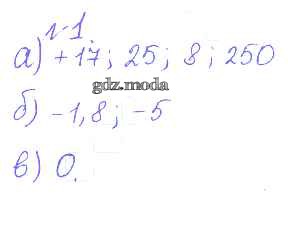 №1.
а) +17; 25; 8; 250
gdz.moda
б) -1,8; -5
в) 0.